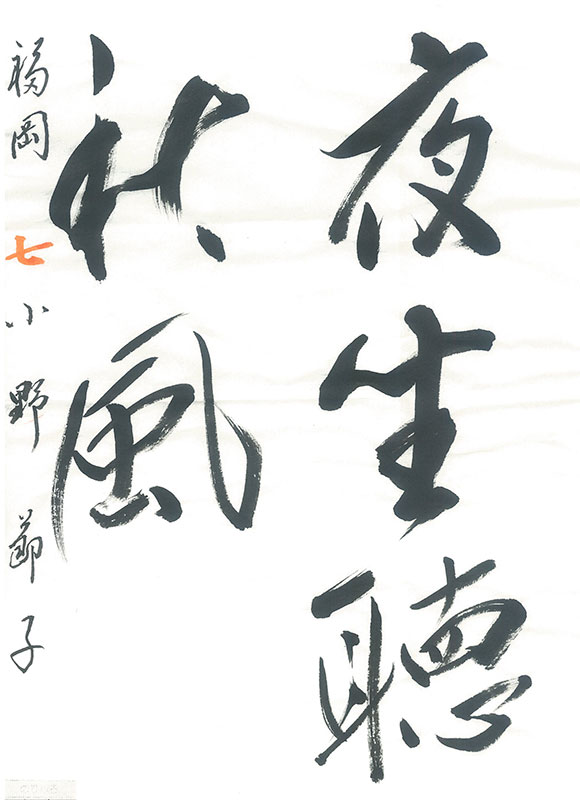 夜坐聴
秋風
福岡 七 小野節子